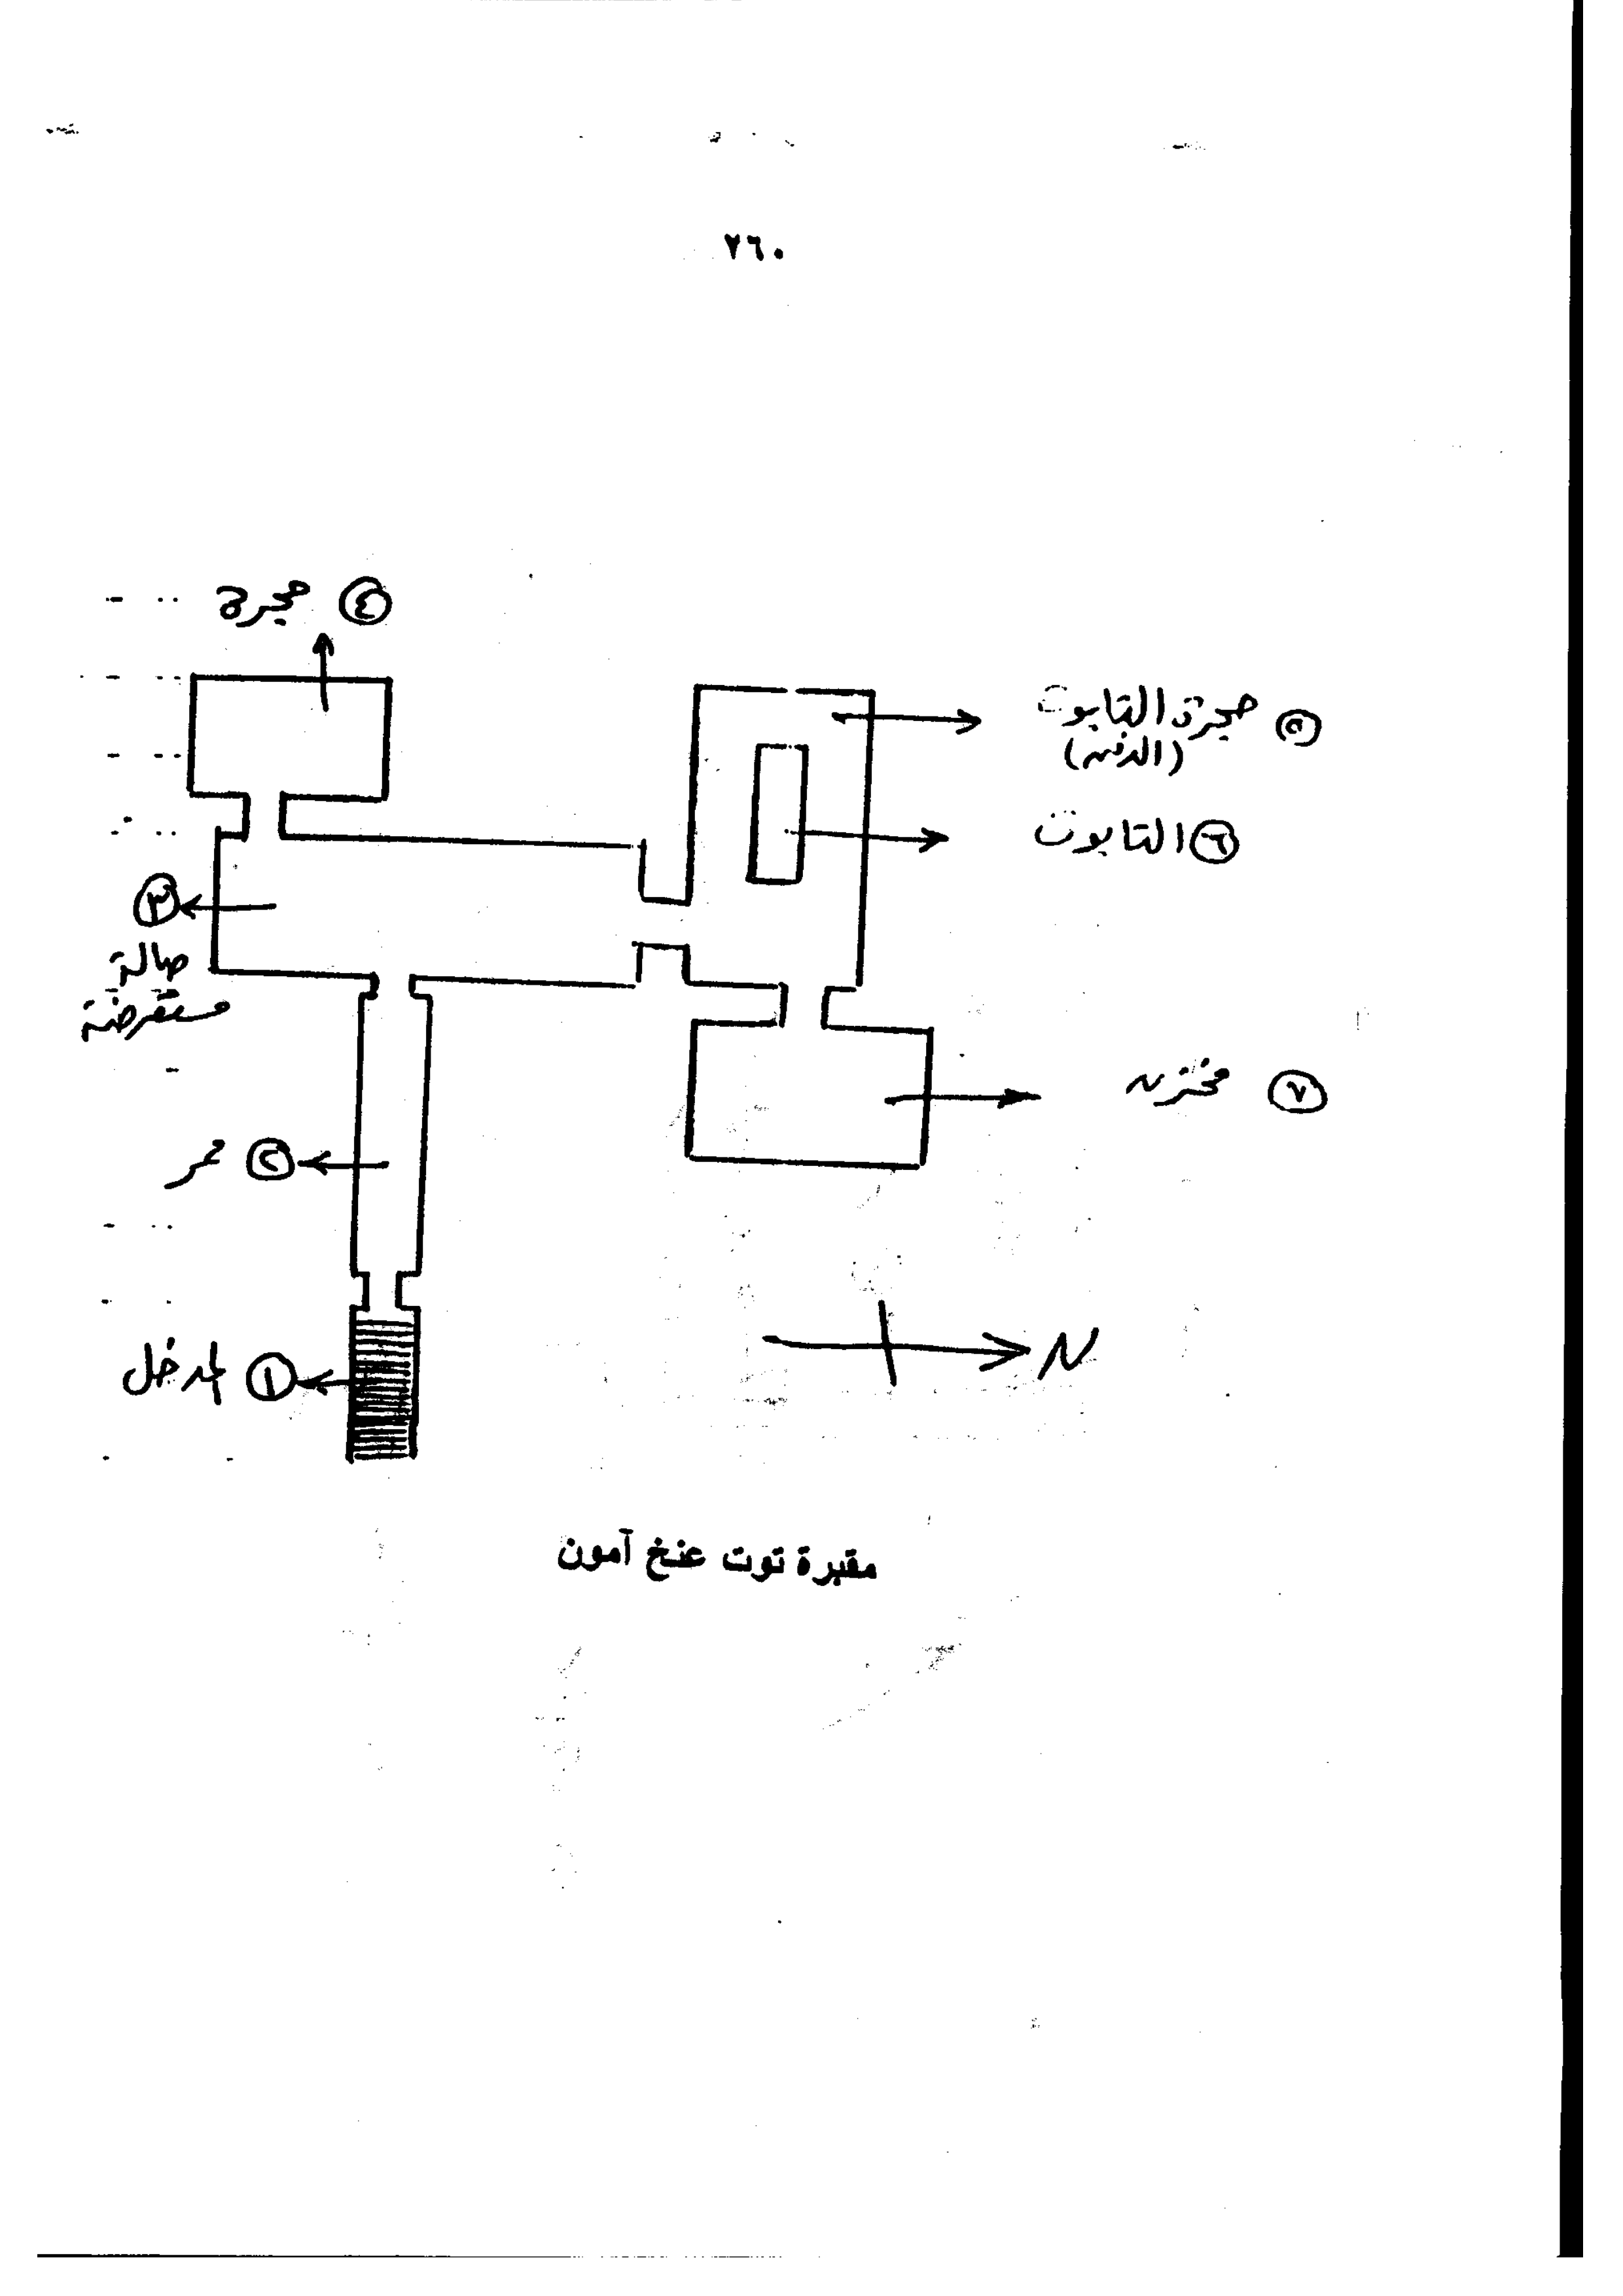 ٢٦٠
٤ حجرة
٥ حجرة التابوت
(الدفن)
٦ التابوت
٣
صالة
مستعرضة
٧ مخزن
٢ ممر
١ المدخل
N
مقبرة توت عنخ آمون